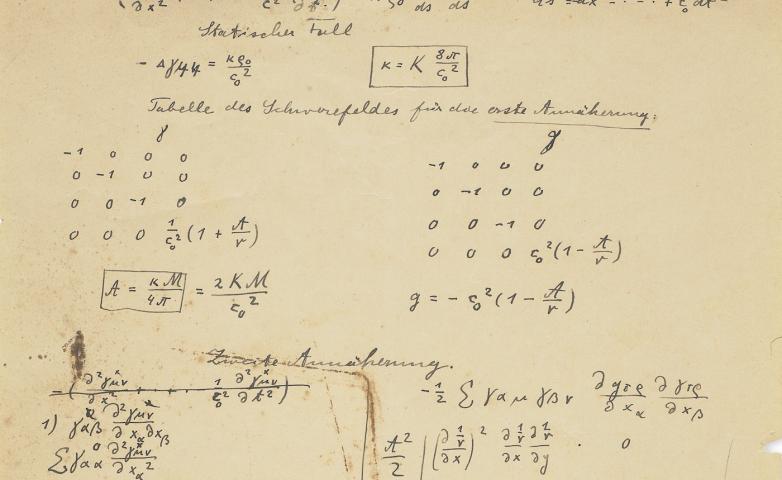 Statischer Fall
- Δγ44 = κρ0/c0²   κ = K 8π/c0²
Tabelle des Schwerefeldes für die erste Annäherung:
γ   g
-1 0 0 0   -1 0 0 0
0 -1 0 0   0 -1 0 0
0 0 -1 0   0 0 -1 0
0 0 0 1/c0² (1 + A/r)   0 0 0 c0² (1 - A/r)
A = κM/4π = 2KM/c0²   g = - c0² (1 - A/r)
Zweite Annäherung.
-(∂²γμν/∂x² + · · + 1/c0² ∂²γμν/∂t²)   -1/2 Σ γαμ γβν ∂gτρ/∂xα ∂γτρ/∂xβ
1) γαβ ∂²γμν/∂xα∂xβ
Σ γαα ∂²γμν/∂xα²   A²/2 | (∂ 1/r/∂x)² ∂ 1/r/∂x ∂ 1/r/∂y · 0